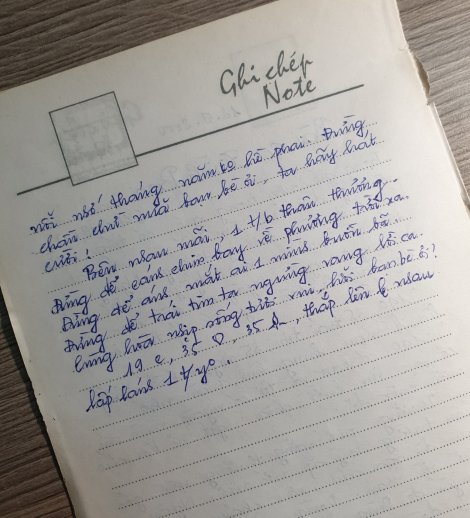 Ghi chép
Note
nỗi nhớ tháng năm bè hè phai. Đừng
chần chừ mãi bạn bè ơi, ta hãy hát
cười!
Bên nhau mãi, 1 t/b thân thương.
Đừng để cánh chim bay về phương trời xa.
Đừng để ánh mắt ai 1 mình buồn bã.
Đừng để trái tim ta ngừng vang lời ca.
cùng hòa nhịp sống tươi vui, hỡi bạn bè ơi?
19 e, 35, 35, thắp lên
lấp lánh 1 t/y